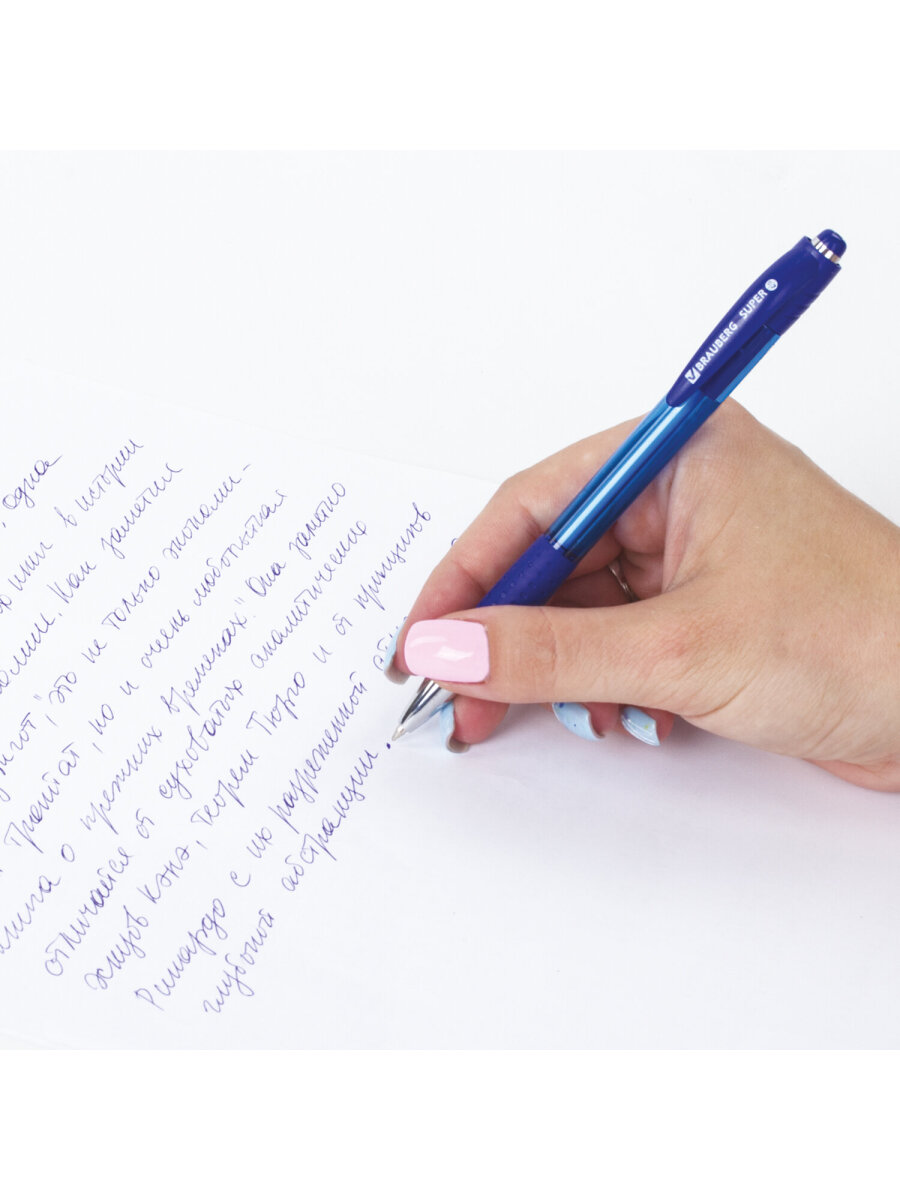 BRAUBERG SUPER
, одна
книг в истории
. Как заметил
", это не только экономи-
трактат, но и очень любопытная
книга о прежних временах." Она заметно
отличается от суховатых аналитических
эскизов Кэнэ, теорем Тюрго и от принципов
Рикардо с их разреженной
глубиной абстракции.